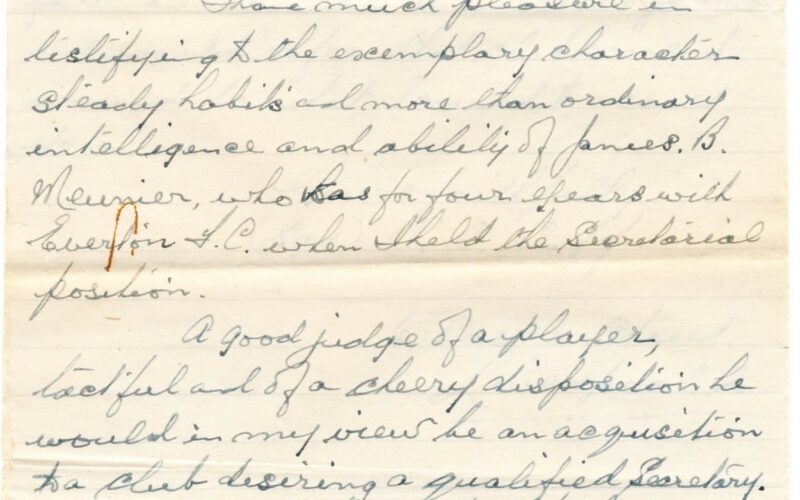 I have much pleasure in
testifying to the exemplary character
steady habits and more than ordinary
intelligence and ability of James. B.
Meunier, who was for four years with
Everton F.C. when I held the Secretarial
position.
A good judge of a player,
tactful and of a cheery disposition he
would in my view be an acqusition
to a club desiring a qualified Secretary.